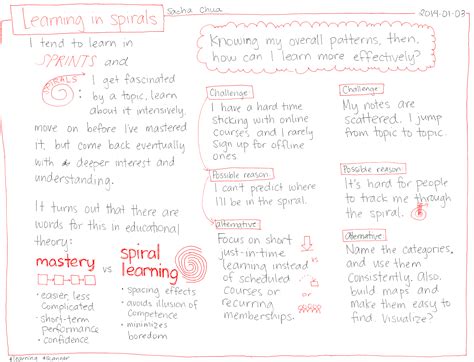 Learning in spirals
Sacha Chua
2014-01-03
I tend to learn in
SPRINTS and
SPIRALS:
I get fascinated
by a topic, learn
about it intensively,
move on before I've mastered
it, but come back eventually
with deeper interest and
understanding.
It turns out that there are
words for this in educational
theory:
mastery
vs
spiral
learning
• easier, less
complicated
• short-term
performance
• confidence
• spacing effects
• avoids illusion of
competence
• minimizes
boredom
Knowing my overall patterns, then,
how can I learn more effectively?
Challenge
I have a hard time
sticking with online
courses and I rarely
sign up for offline
ones.
Possible reason
I can't predict where
I'll be in the spiral.
alternative
Focus on short
just-in-time
learning instead
of scheduled
courses or
recurring
memberships.
Challenge
My notes are
scattered. I jump
from topic to topic.
Possible reason
It's hard for people
to track me through
the spiral.
Alternative
Name the categories,
and use them
consistently. Also,
build maps and
make them easy to
find. Visualize?
#learning #scanner